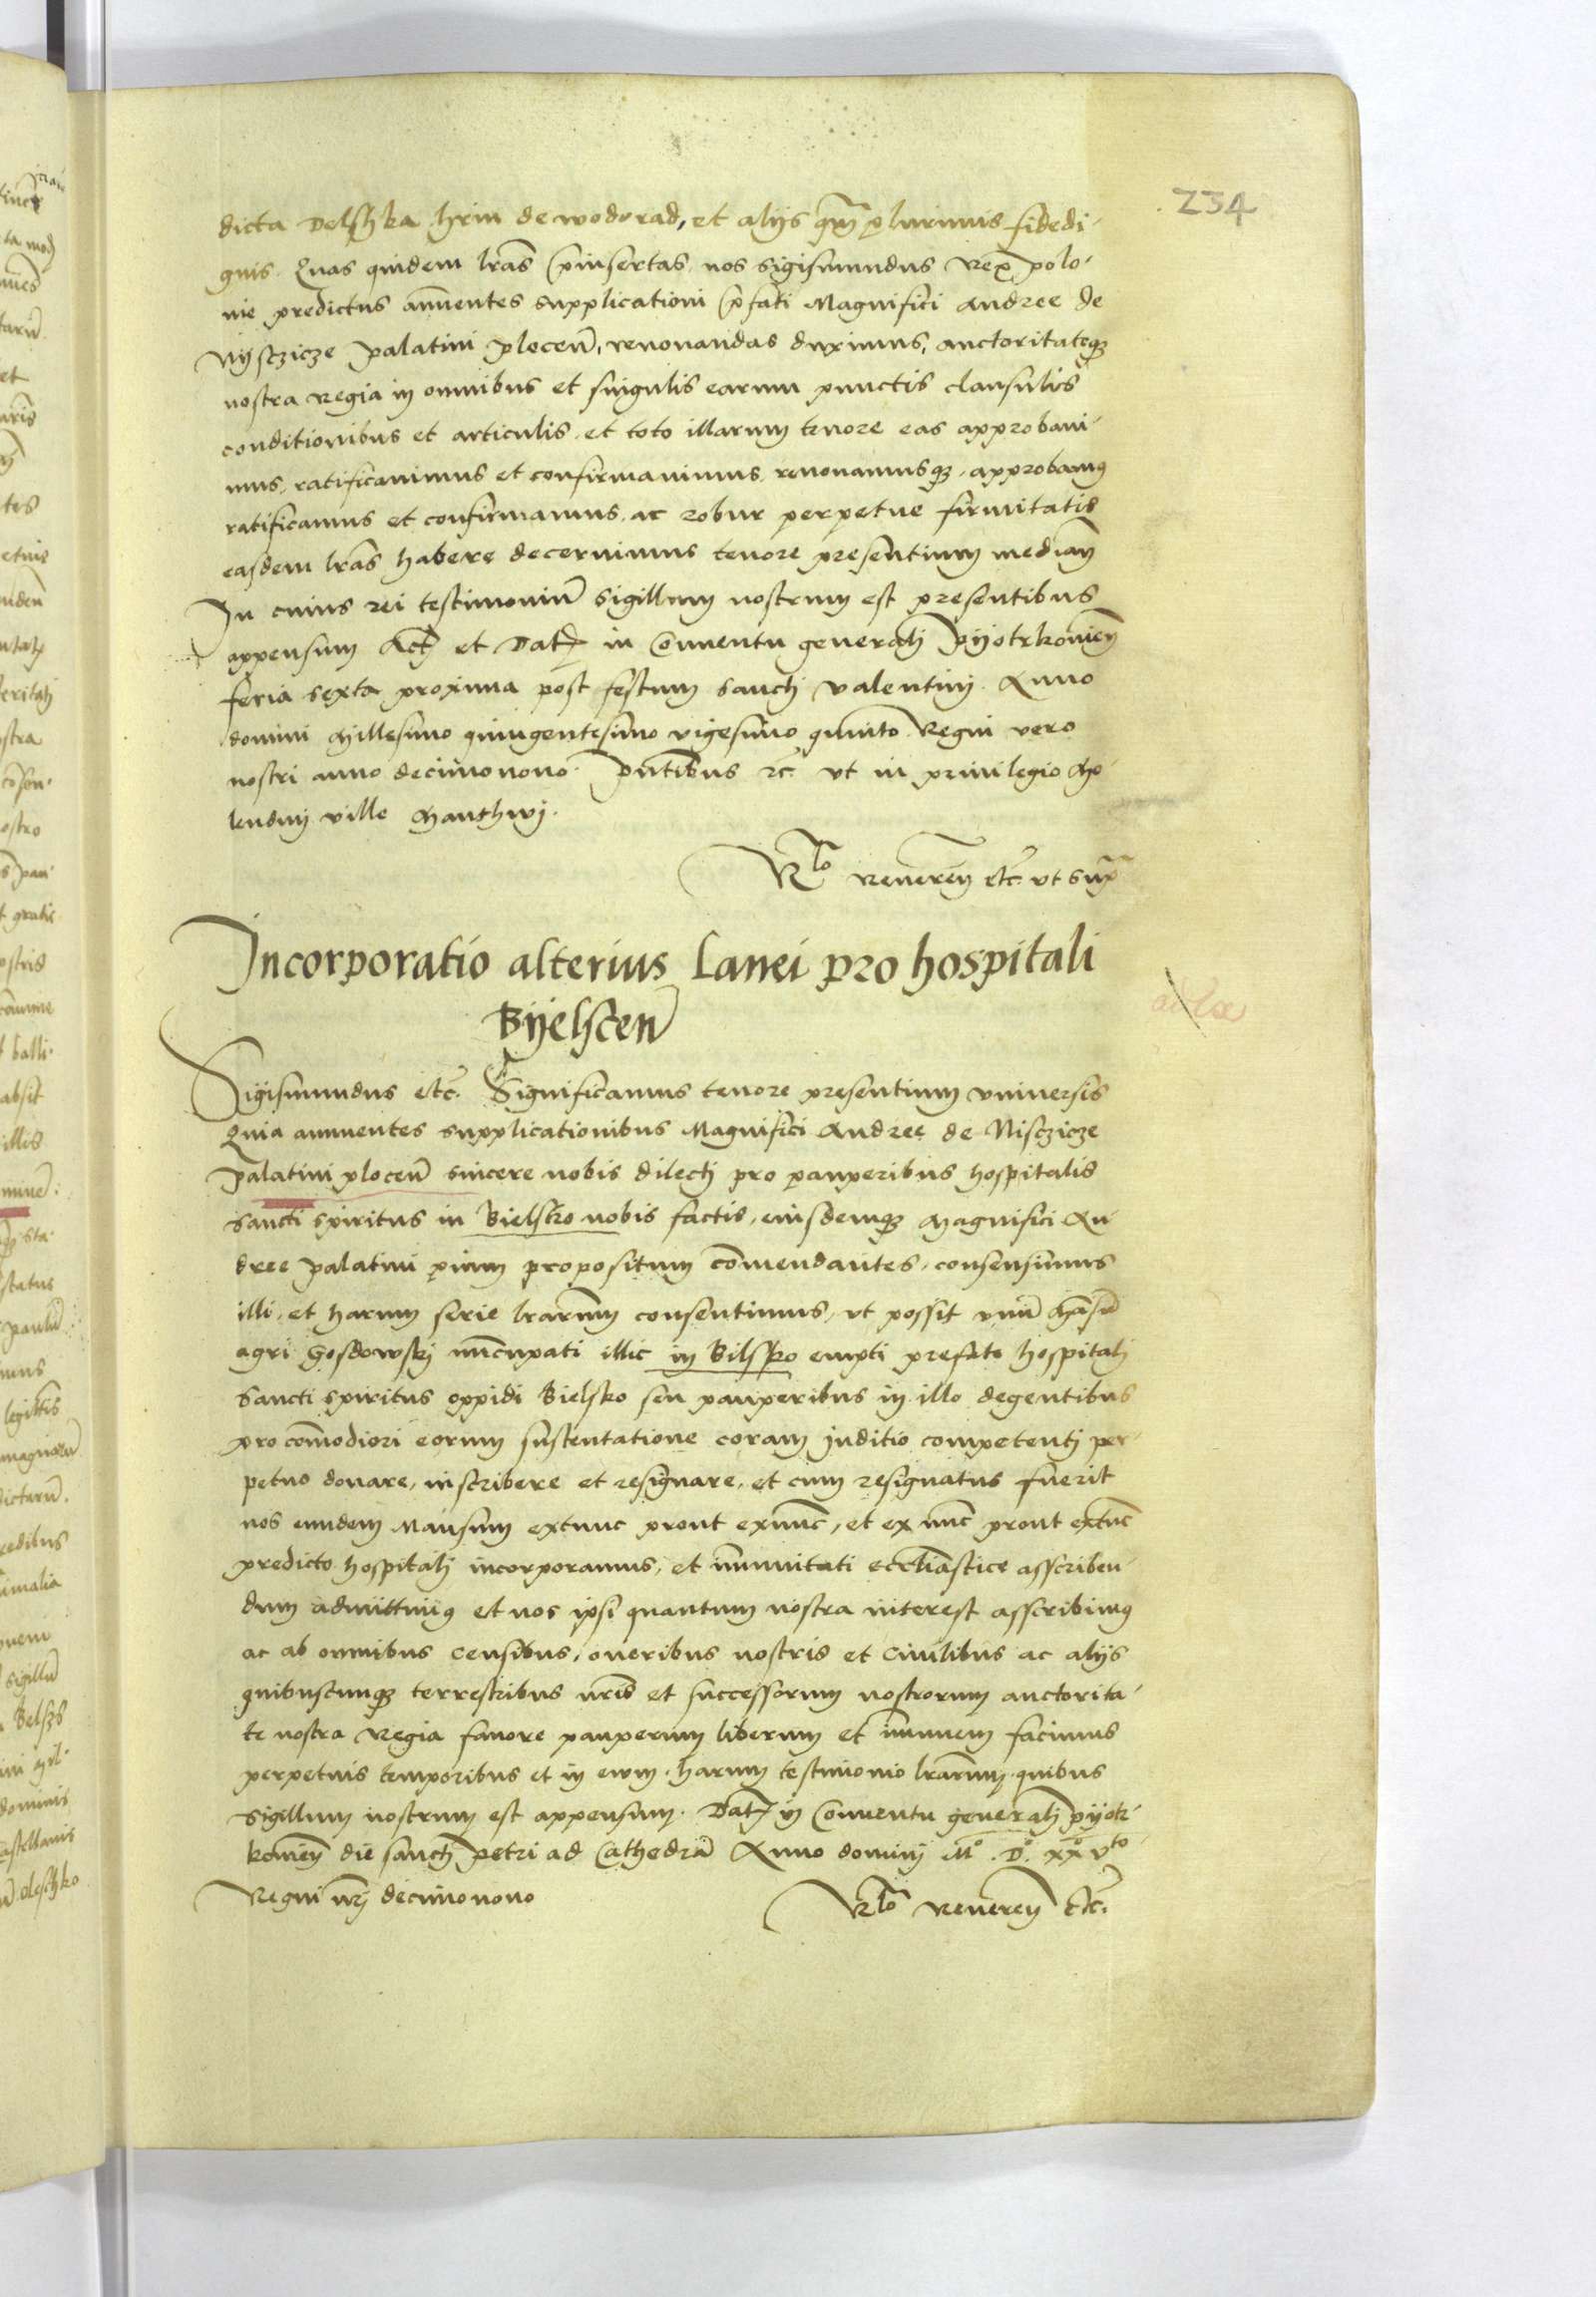 234
dicta Delshka hrin de wodorad, et alijs qm plurimis fidedi-
gnis. Quas quidem lras preinsertas nos Sigismundus Rex polo-
nie predictus annuentes supplicationi prefati Magnifici Andree de
Nijsczicze palatini plocen, renouandas duximus, auctoritateque
nostra regia in omnibus et singulis earum punctis clausulis
conditionibus et articulis et toto illarum tenore eas approbaui-
mus, ratificauimus et confirmauimus, renouamusque, approbamus
ratificamus et confirmamus ac robur perpetue firmitatis
easdem lras habere decernimus tenore presentium median
In cuius rei testimoniu sigillum nostrum est presentibus
appensum Act et Dat in Conuentu generalj pijotrkonien
feria sexta proxima post festum sanctj valentinj. Anno
domini Millesimo quingentesimo vigesimo quinto Regni vero
nostri anno decimonono. pntibus etc. vt in priuilegio Mo-
lendinj ville Manthwj.
Rlo Reueren etc. vt supra
Incorporatio alterius Lanei pro hospitali
Bijelscen
Sigismundus etc. Significamus tenore presentium vniuersis
Quia annuentes supplicationibus Magnifici Andree de Nisczicze
palatini plocen sincere nobis dilectj pro pauperibus hospitalis
sancti spiritus in Bielsko nobis factis, eiusdemque Magnifici An-
dree palatini pium propositum comendantes, consensimus
illi, et harum serie lrarum consentimus, vt possit vnu Mansu
agri Gosdowskj nuncupati illic in Bilsko empti prefato hospitalj
Sancti spiritus oppidi Bielsko seu pauperibus in illo degentibus
pro comodiori eorum sustentatione coram Juditio competentj per-
petuo donare, inscribere et resignare, et cum resignatus fuerit
nos eundem Mansum extunc prout exnunc, et ex nunc prout extunc
predicto hospitalj incorporamus, et immunitati ecclesiastice asscriben-
dum admittimus et nos ipsi quantum nostra interest asscribimus
ac ab omnibus censibus, oneribus nostris et Ciuilibus ac alijs
quibuscunque terrestribus nris et successorum nostrorum auctorita-
te nostra Regia fauore pauperum liberum et imunem facimus
perpetuis temporibus et in euum. harum testimonio lrarum, quibus
Sigillum nostrum est appensum. Dat in Conuentu generalj pijotr-
konien die sanctj petri ad Cathedra Anno dominj Mo. Do. xxvto
Regni nrj decimonono
Rlo Reueren etc.